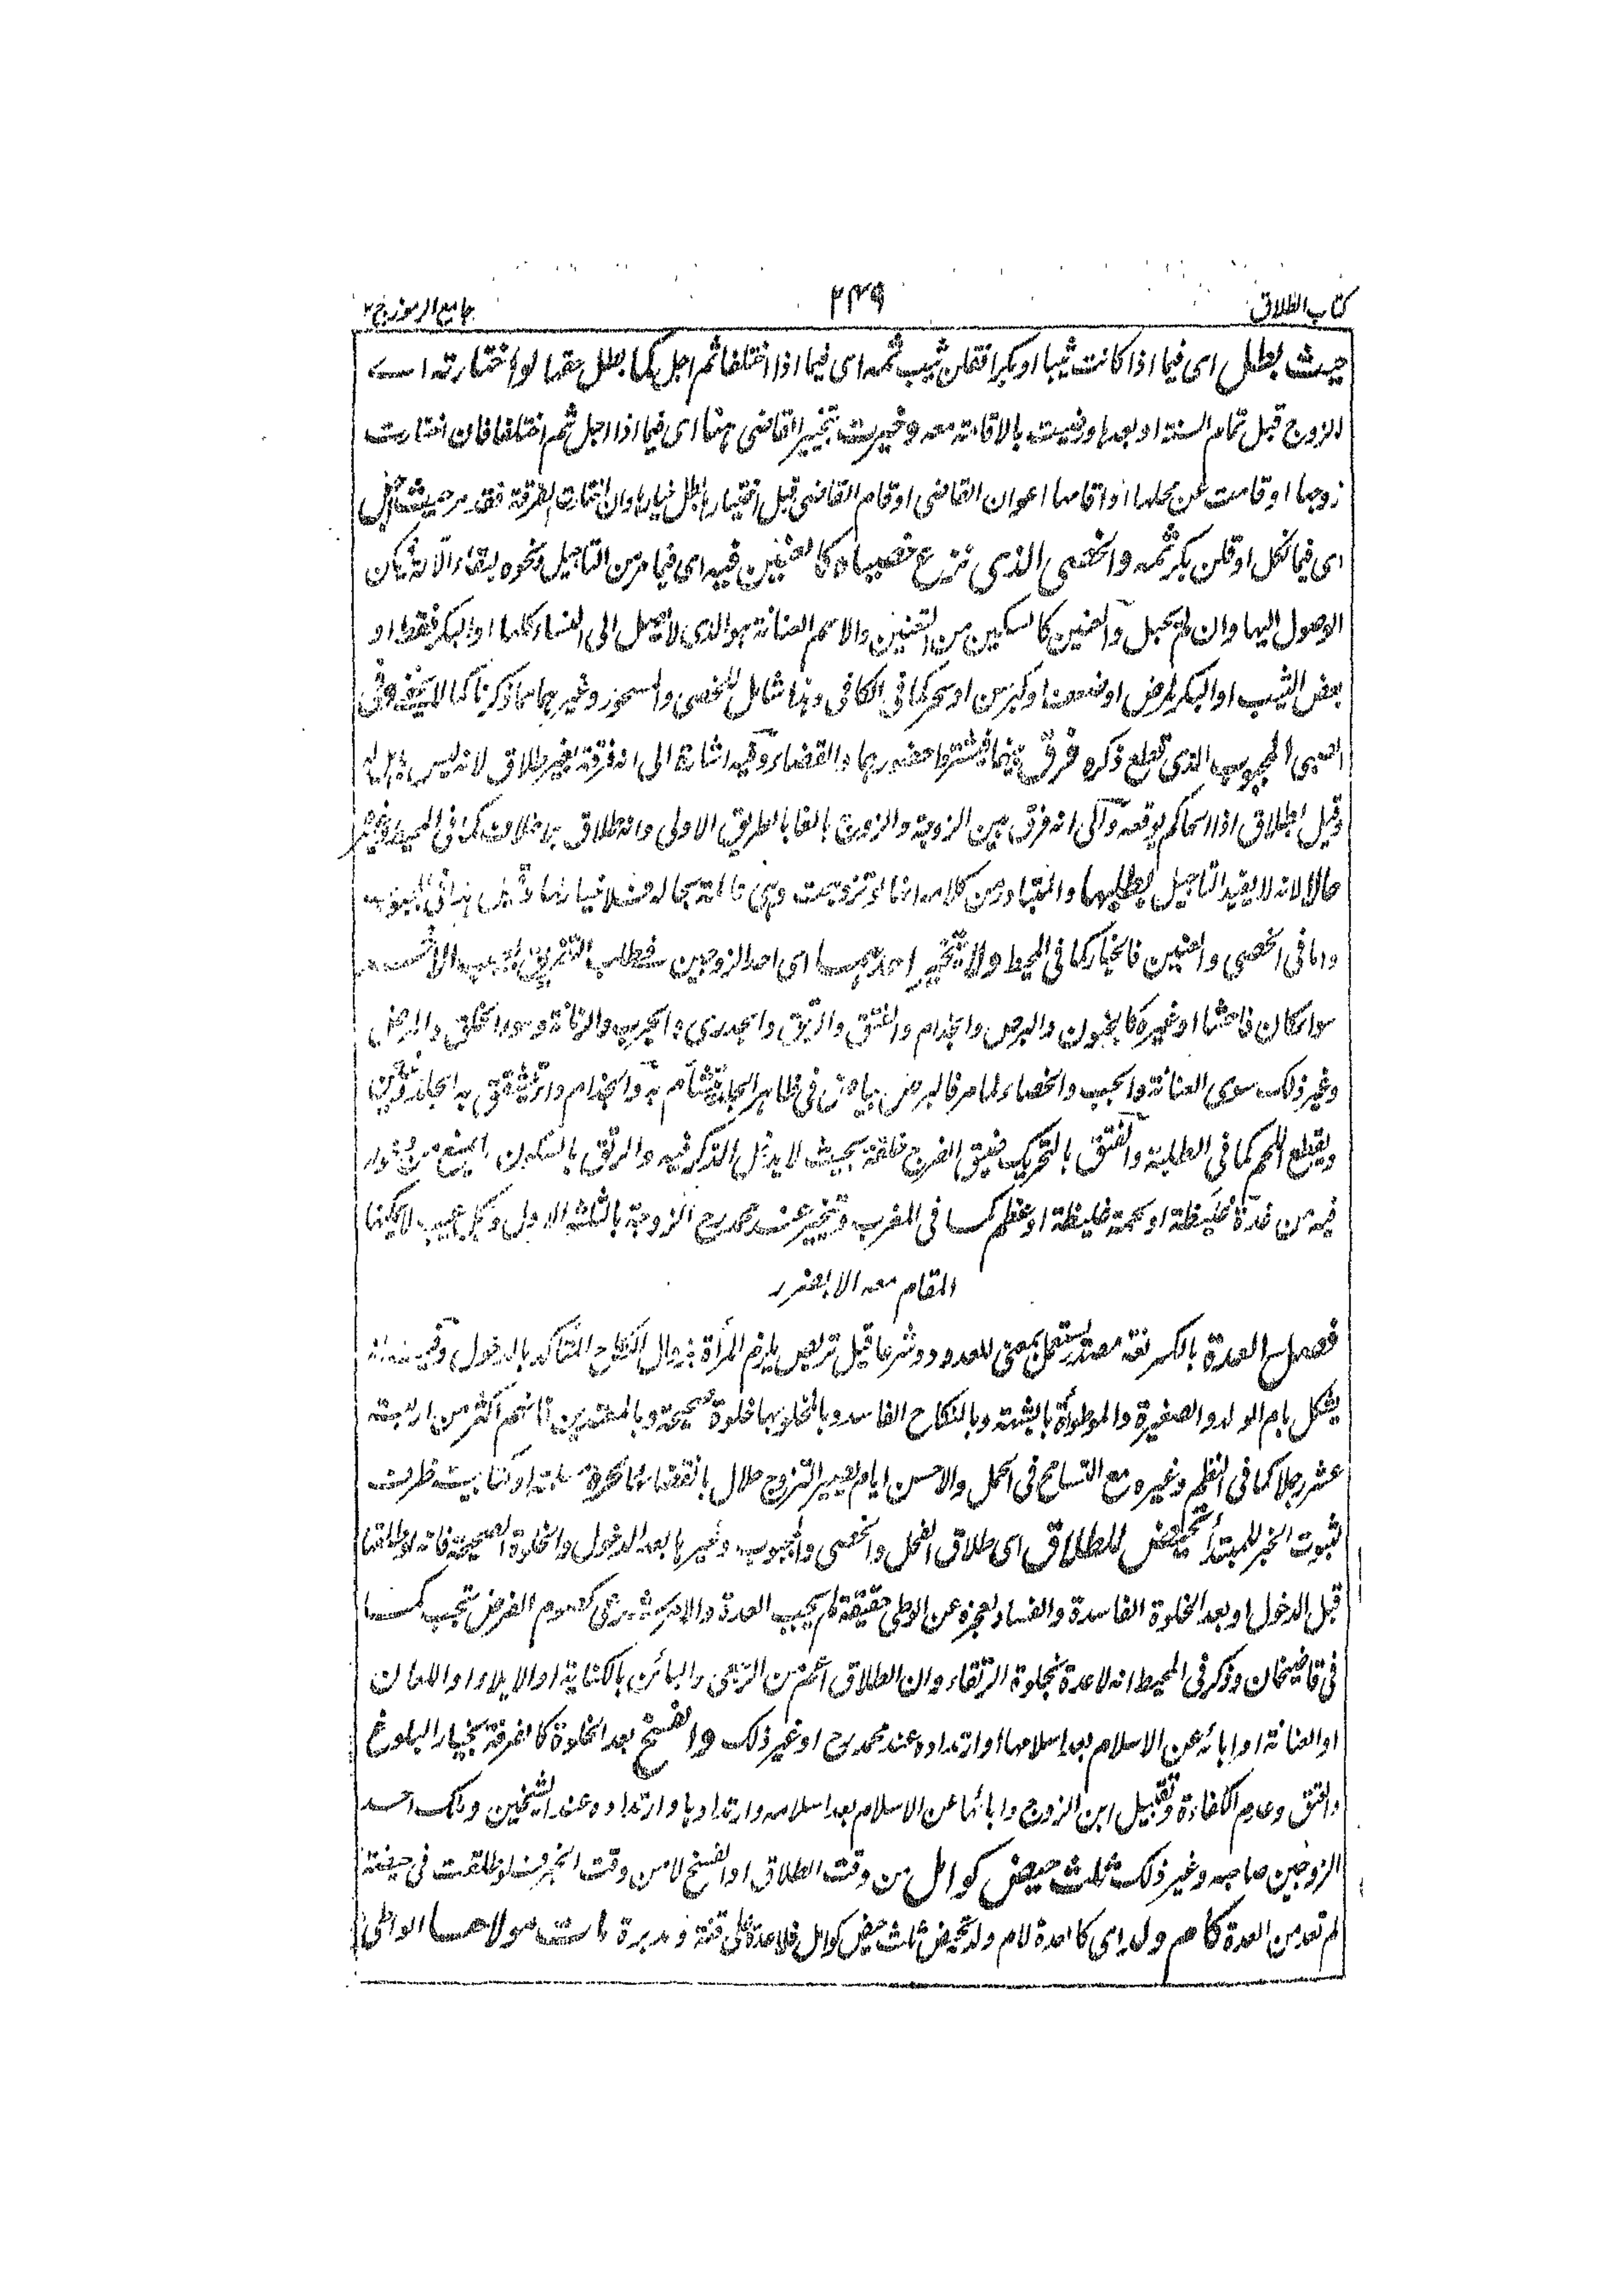 كتاب الطلاق ٢٤٩ جامع الرموز ج٢
حيث بطل اى فيما اذا كانت ثيبا او بكرا فقلن ثيب ثمه اى فيما اذا اختلفا ثم اجل كما بطل حقها لو اختارته اے
الزوج قبل تمام السنة او بعدها ورضيت بالاقامة معه وخيرت بتخيير القاضى ههنا اى فيما اذا اجل ثمه اختلفا فان اختارت
زوجها او قامت عن محلها او اقامها اعوان القاضى او قام القاضى قبل اختيارها بطل خيارها وان اختارت الفرقة فقد مر حيث اجل
اى فيما نكل او قلن بكر ثمه والخصى الذى نزع خصياه كالعنين فيه اى فيما مر من التاجيل ونحوه لبقاء الآلة فيمكن
الوصول اليها وان لم يحبل والعنين كالسكين من التعنين والاسم العنانة هو الذى لا يصل الى النساء كلها او البكر فقط او
بعض الثيب او البكر لمرض او ضعف او كبر سن او سحر كما فى الكافى وهذا شامل للخصى والمسحور وغيرهما مما ذكرنا كما لا يخفى وفى
الصبى المجبوب الذى قطع ذكره فرق بينهما فيشترط حضورهما والقضاء وفيه اشارة الى انه فرقة بغير طلاق لانه ليس باهل له
وقيل بطلاق اذا الحاكم يوقعه وآلى انه فرق بين الزوجة والزوج بالغا بالطريق الاولى وانه طلاق بلا خلاف كما فى المحيط
حالا لانه لا يفيد التاجيل بطلبها والمتبادر من كلامه انها لو تزوجت وهى عالمة بحاله فلا خيار لها هذا فى المجبوب
واما فى الخصى والعنين فالخيار كما فى المحيط ولا يتخير احدهما اى احد الزوجين فطلب التفريق بعيب الآخر
سواء كان فاحشا او غيره كالجنون والبرص والجذام والفتق والرتق والجدرى والجرب والزمانة وسوء الخلق والمرض
وغير ذلك سوى العنانة والجب والخصاء لما مر فالبرص بياض فى ظاهر الجلد يتشأم به والجذام داء يتشقق به الجلد وينتن
ويقطع اللحم كما فى الطلبة والفتق بالتحريك ضيق الفرج خلقة بحيث لا يدخل الذكر فيه والرتق بالسكون المنع من دخوله
فيه من غدة غليظة او لحمة غليظة او عظم كما فى المغرب وتخير عند محمد رح الزوجة بالثلثة الاول وكل عيب لا يمكنها
المقام معه الا بضرر
فصل العدة بالكسر لغة مصدر يستعمل بمعنى للمعدود وشرعا قيل تربص يلزم المرأة بزوال النكاح المتأكد بالدخول وفيه انه
يشكل بام الولد والصغيرة والموطوأة بالشبهة وبالنكاح الفاسد وبالمخلو بها خلوة صحيحة وبالمعتدين فانهم اكثر من اربعة
عشر رجلا كما فى النظم وغيره مع التسامح فى الحمل والاحسن ايام يصير التزوج حلال بانقضائها لحرة مسلمة او كتابية ظرف
لثبوت الخبر للمبتدأ تحيض للطلاق اى طلاق الفحل والخصى والمجبوب وغيرها بعد الدخول والخلوة الصحيحة فانه لو طلقها
قبل الدخول او بعد الخلوة الفاسدة والفساد لعجزه عن الوطى حقيقة لم يجب العدة والامر شرعى كصوم الفرض تجب كما
فى قاضيخان وذكر فى المحيط انه لا عدة بخلوة الرتقاء وان الطلاق اعم من الرجعى والبائن بالكناية او الايلاء او اللعان
او العنانة او ابائه عن الاسلام بعد اسلامها او ارتداده عند محمد رح او غير ذلك والفسخ بعد الخلوة كالفرقة بخيار البلوغ
والعتق وعدم الكفاءة وتقبيل ابن الزوج وابائها عن الاسلام بعد اسلامه وارتدادها وارتداده عند الشيخين وملك احد
الزوجين صاحبه وغير ذلك ثلث حيض كوامل من وقت الطلاق او الفسخ لا من وقت الخبر فلو طلقت فى حيضة
لم تعد من العدة كام ولد اى كالعدة لام ولد تحيض ثلث حيض كوامل فلا عدة على قنة ومدبرة مات مولاها الواطى